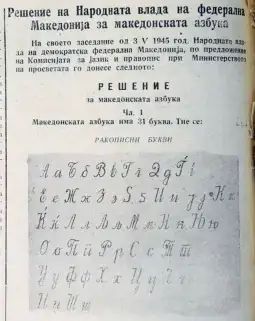 Решение на Народната влада на федерална
Македонија за македонската азбука
На своето заседание од 3 V 1945 год. Народната вла-
да на демократска федерална Македонија, по предложение
на Комисијата за јазик и правопис при Министерството
на просветата го донесе следното:
РЕШЕНИЕ
за македонската азбука
Чл. 1
Македонската азбука има 31 буква. Тие се:
РАКОПИСНИ БУКВИ
Аа Бб Вв Гг Дд Ѓѓ
Ее Жж Зз Ѕѕ Ии Јј Кк
Ќќ Лл Љљ Мм Нн Њњ
Оо Пп Рр Сс Тт
Уу Фф Хх Цц Чч
Џџ Шш